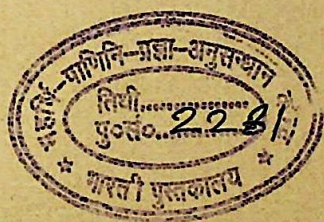 महर्षि-पाणिनि-प्रज्ञा-अनुसन्धान
तिथी..................
पु०सं०..2281
* भारती पुस्तकालय *